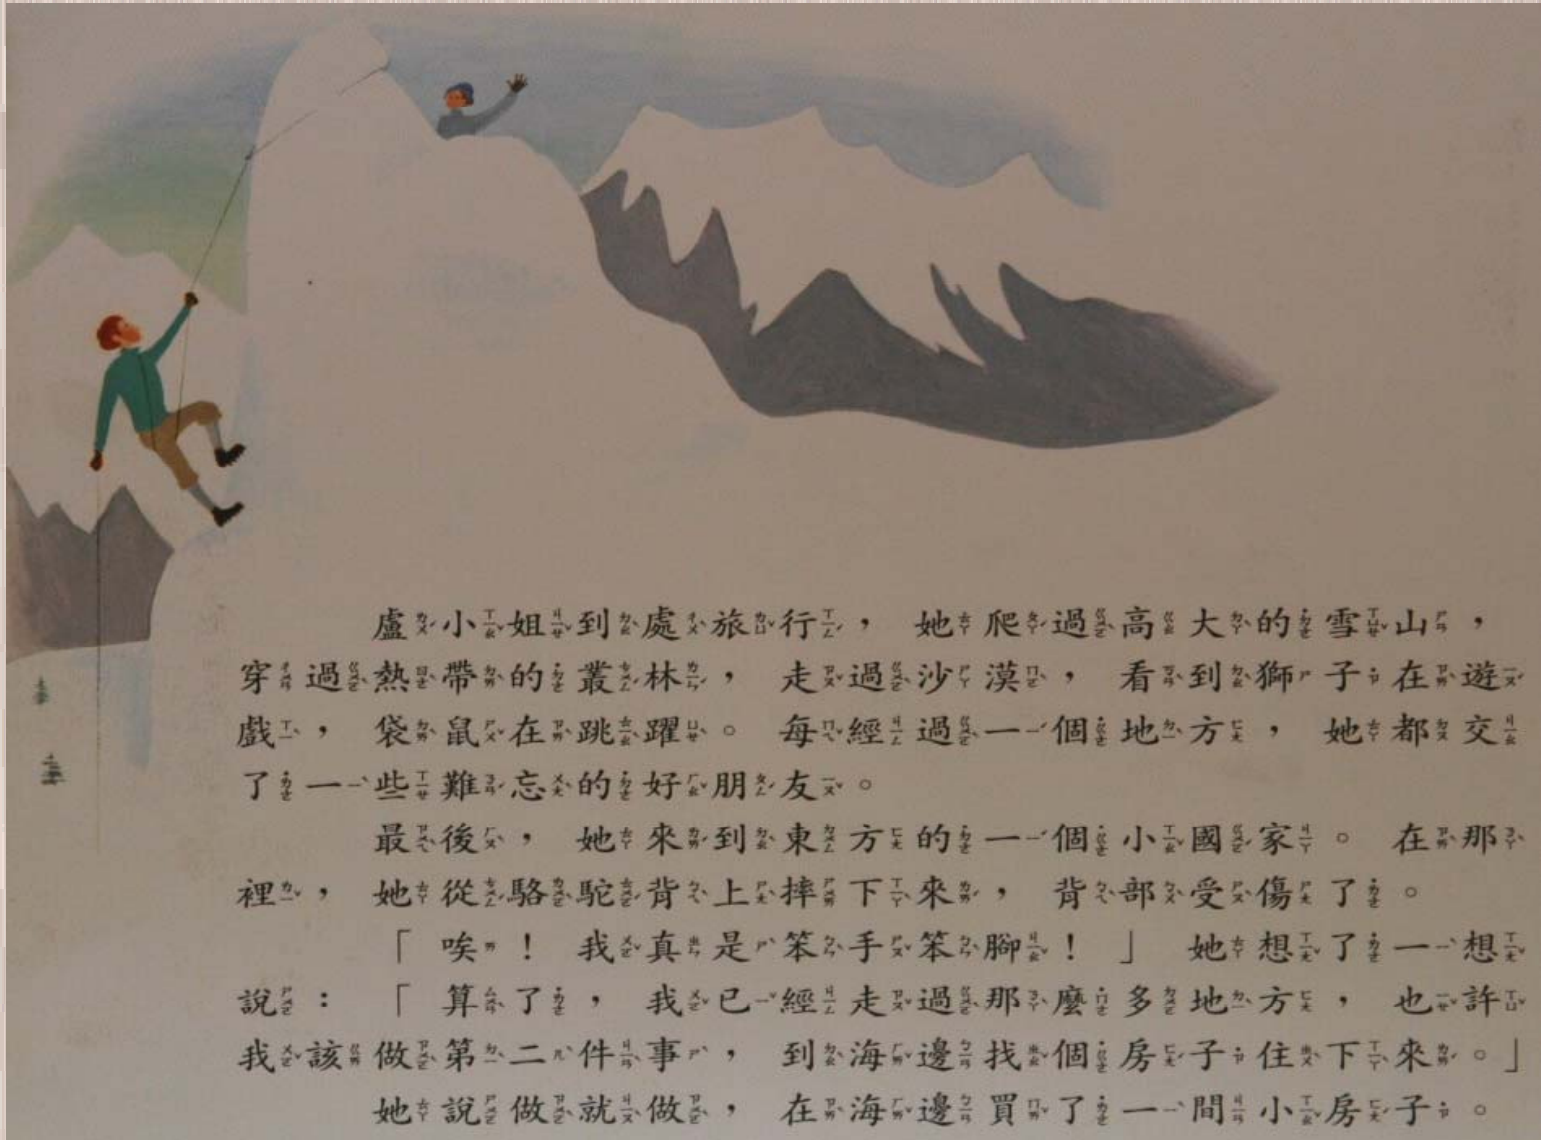 盧小姐到處旅行，她爬過高大的雪山，
穿過熱帶的叢林，走過沙漠，看到獅子在遊
戲，袋鼠在跳躍。每經過一個地方，她都交
了一些難忘的好朋友。
最後，她來到東方的一個小國家。在那
裡，她從駱駝背上摔下來，背部受傷了。
「唉！我真是笨手笨腳！」她想了一想
說：「算了，我已經走過那麼多地方，也許
我該做第二件事，到海邊找個房子住下來。」
她說做就做，在海邊買了一間小房子。